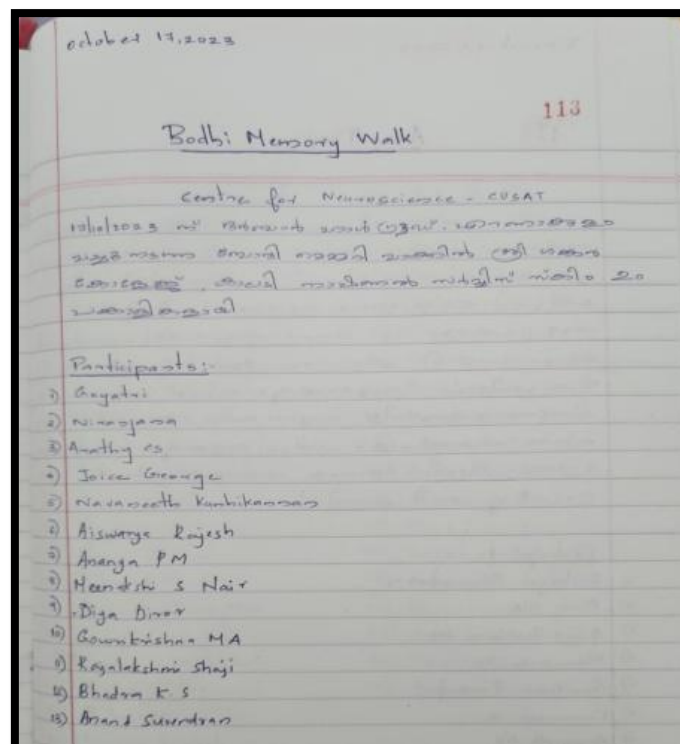 October 17, 2023
113
Bodhi Memory Walk
Centre for Neuroscience - CUSAT
നടന്ന ബോധി മെമ്മറി ശ്രീ ശങ്കര
കോളേജ്, കാലടി നാഷണൽ സർവ്വീസ് സ്കീം ഉം
പങ്കാളികളായി
Participants:-
1) Gayatri
2) Niranjana
3) Arathy cs
4) Joice George
5) Navaneeth Kunhikannan
6) Aiswarya Rajesh
7) Ananya PM
8) Meenakshi S Nair
9) Diya
10) Gowrikrishna MA
11) Rajalakshmi Shaji
12) Bhadra K S
13) Anand Surendran